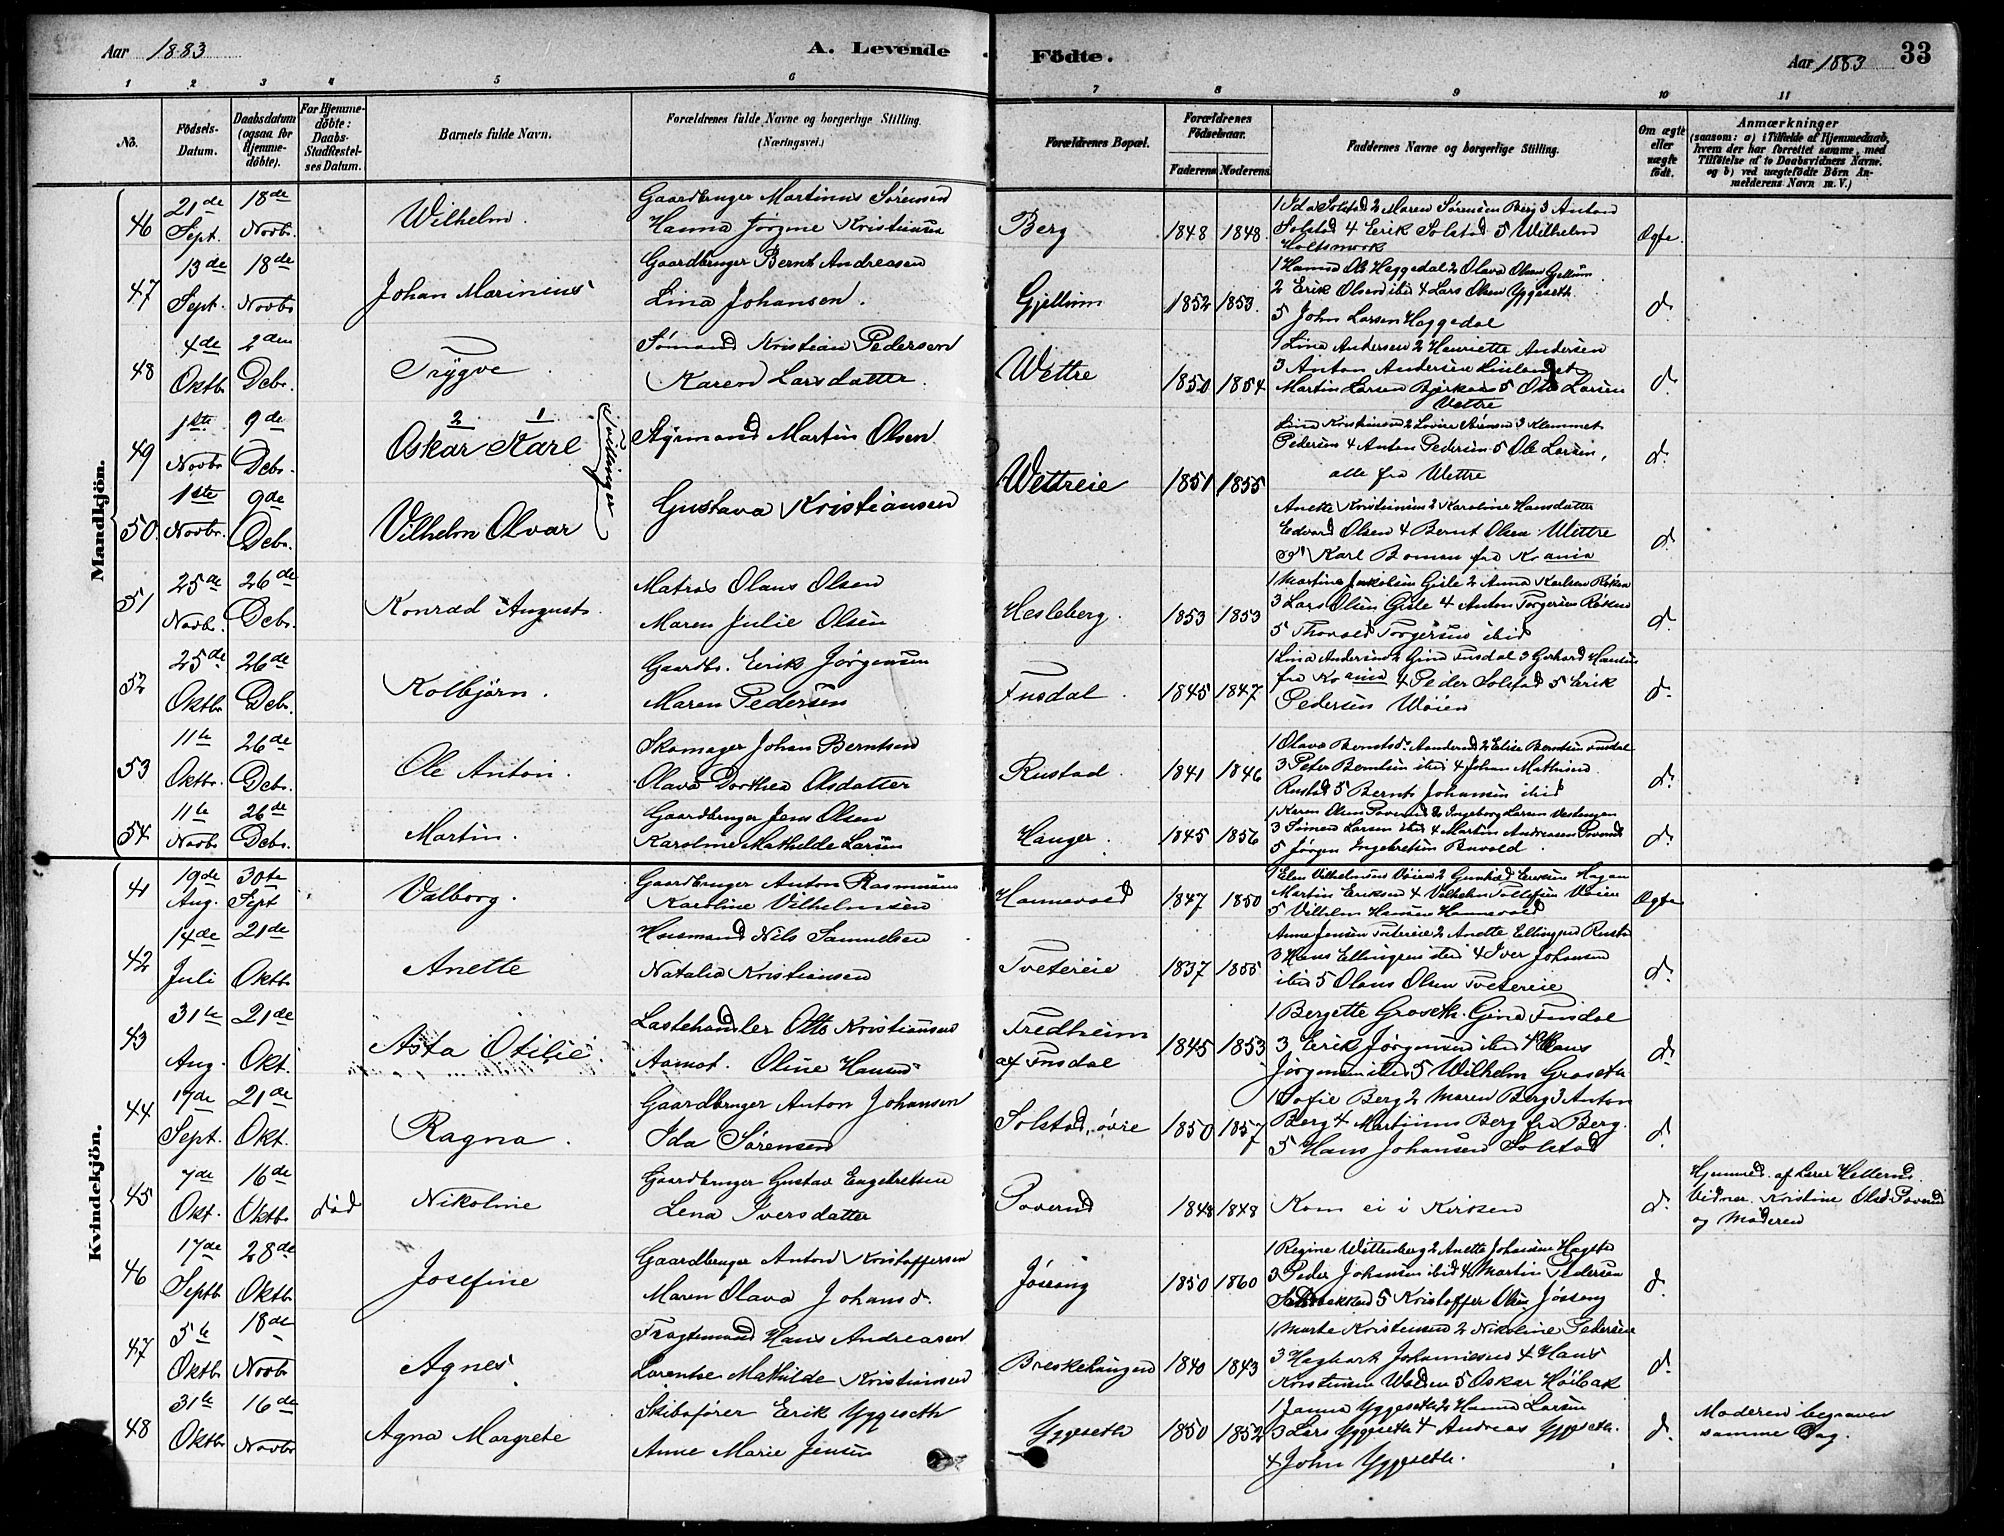 Aar 1883
A. Levende
Födte.
Aar 1883
33
1 2 3 4 5 6 7 8 9 10 11
No.
Födsels-Datum.
Daabsdatum (ogsaa for Hjemmedöbte).
For Hjemmedöbte: Daabs-Stadfæstelses Datum.
Barnets fulde Navn.
Forældrenes fulde Navne og borgerlige Stilling. (Næringsvei.)
Forældrenes Bopæl.
Forældrenes Födselsaar.
Faderens Moderens
Faddernes Navne og borgerlige Stilling.
Om ægte eller uægte födt.
Anmærkninger
(saasom: a) i Tilfælde af Hjemmedaab, hvem der har forrettet samme, med Tilföielse af to Daabsvidners Navne. og b) ved uægtefödte Börn Anmelderens Navn m. V.)
Mandkjön.
46 21de Sept. 18de Novbr. Wilhelm.
Gaardbruger Martinus Sørensen
Hanna Jørgine Kristiansen
Berg 1848 1848.
1 Ida Solstad 2 Maren Sørensen Berg 3 Anton
Solstad 4 Erik Solstad 5 Wilhelm
Holtsmark
Ægte.
47 13de Sept. 18de Novbr. Johan Marinius
Gaardbruger Bernt Andreasen
Lina Johansen.
Gjellum 1852 1853.
1 Hanna Ols Heggedal 2 Olava Olsen Gjellum
2 Erik Olsen ibid 4 Lars Olsen Yggeseth
5 John Larsen Heggedal
d.
48 4de Oktbr. 2den Debr. Trygve
Sømand Kristian Pedersen
Karen Larsdatter.
Wettre 1850 1854.
1 Lina Andersen 2 Henriette Andersen
3 Anton Andersen
Martin Larsen 5 Ole Larsen
Vettre
d.
49 1ste Novbr. 9de Debr. 2 1
Oskar Karl
Tvillinger
Styrmand Martin Olsen
Gustava Kristiansen
Wettreie 1851 1855
Lina Kristiansen 2 Lovise Sørensen 3 Klemmet
Pedersen 4 Anton Pedersen 5 Ole Larsen,
alle fra Wettre
d.
50. 1ste Novbr. 9de Debr. Vilhelm Olvar
Anette Kristiansen 2 Karoline Hansdatter
Edvard Olsen 4 Bernt Olsen Wettre
Karl Boman fra Krania
d.
51 25de Novbr. 26de Debr. Konrad August.
Matros Olaus Olsen
Maren Julie Olsen
Hesleberg. 1853 1853
1 Martine Jakobsen Gisle 2 Anna Karlsen Røken
3 Lars Olsen Gisle 4 Anton Torgersen Røken
5 Thorvald Torgersen ibid
d.
52 25de Oktbr. 26de Debr. Kolbjørn.
Gaardbr. Erik Jørgensen
Maren Pedersen
Fusdal. 1845 1847
1 Lina Andersen 2 Gina Fusdal 3 Gerhard Hansen
fra Krania 4 Peder Solstad 5 Erik
Pedersen Woien
d.
53 11te Oktbr. 26de Debr. Ole Anton.
Skomager Johan Berntsen
Olava Dorthea Olsdatter
Rustad. 1841 1846
1 Olava Berntsd. 2 Elise Berntsen Fusdal
3 Peter Berntsen ibid 4 Johan Mathisen
Rustad 5 Bernt Johansen ibid
d.
54 11te Novbr. 26de Debr. Martin.
Gaardbruger Jens Olsen
Karoline Mathilde Larsen
Hanger. 1845 1856
1 Karen Olsen Poverud 2 Ingeborg Larsen
3 Simen Larsen ibid 4 Martin Andreasen Poverud
5 Jørgen Ingebretsen
d.
Kvindekjön.
41 19de Aug. 30te Sept Valborg.
Gaardbruger Anton Rasmussen
Karoline Vilhelmsen
Hannevold 1847 1850
1 Elen Vilhelmsen Voien 2 Gunhild Eriksen Hagan
Martin Eriksen 4 Vilhelm Tollefsen Voien
5 Vilhelm Hansen Hannevold
Ægte
42 14de Juli 21de Oktbr. Anette
Husmand Nils Samuelsen
Natalia Kristiansen
Tvetereie 1837 1855
Anne Jensen Tvetereie 2 Anette Ellingsen Rustad
3 Hans Ellingsen ibid 4 Iver Johansen
ibid 5 Olaus Olsen Tvetereie
d.
43 31te Aug. 21de Okt. Asta Otilie.
Lastehandler Otto Kristiansen
Aamot. Oline Hansen
Fredheim
af Fusdal 1845 1853
1 Bergette Groseth. Gina Fusdal
3 Erik Jørgensen ibid 4 Hans
Jørgensen ibid 5 Wilhelm Groseth
d.
44 19de Sept. 21de Okt. Ragna.
Gaardbruger Anton Johansen
Ida Sørensen
Solstad, øvre 1850 1857
1 Sofie Berg 2 Maren Berg 3 Anton
Berg 4 Martinus Berg fra Berg.
5 Hans Johansen Solstad
d.
45 7de Okt. 16de Oktbr. død Nikoline
Gaardbruger Gustav Engebretsen
Lena Iversdatter
Poverud 1848 1848
Kom ei i Kirken
d.
Hjemmed. af Lærer Hellerud.
Vidner. Kristine Olsd. Poverud
og Moderen
46 17de Septbr. 28de Oktbr. Josefine
Gaardbruger Anton Kristoffersen
Maren Olava Johansd.
Jøssong 1850 1860
1 Regine Wettenberg 2 Anette Johansen Hogsta
3 Peder Johansen ibid 4 Martin Pedersen
5 Kristoffer Olsen Jøssong
d.
47 5te Oktbr. 18de Novbr. Agnes.
Fragtemand Hans Andreasen
Lorentse Mathilde Kristiansen
Breskehaugen 1840 1843
1 Marte Kristensen 2 Nikoline Pedersen
3 Hagbart Johannesen 4 Hans
Kristensen 5 Oskar Høibak
d.
48 31te Oktbr. 16de Novbr. Agna Margrete
Skibsfører Erik Yggeseth
Anne Marie Jensen
Yggeseth 1850 1852
1 Janna Yggeseth 2 Hanna Larsen
3 Lars Yggeseth 4 Andreas Yggeseth.
4 John Yggeseth.
d.
Moderen begraven
samme Dag.